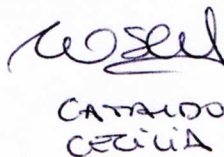 CATALDO
CECILIA